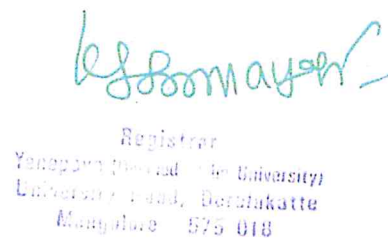 Registrar
Yenepoya (Deemed to be University)
University Road, Deralakatte
Mangalore 575 018